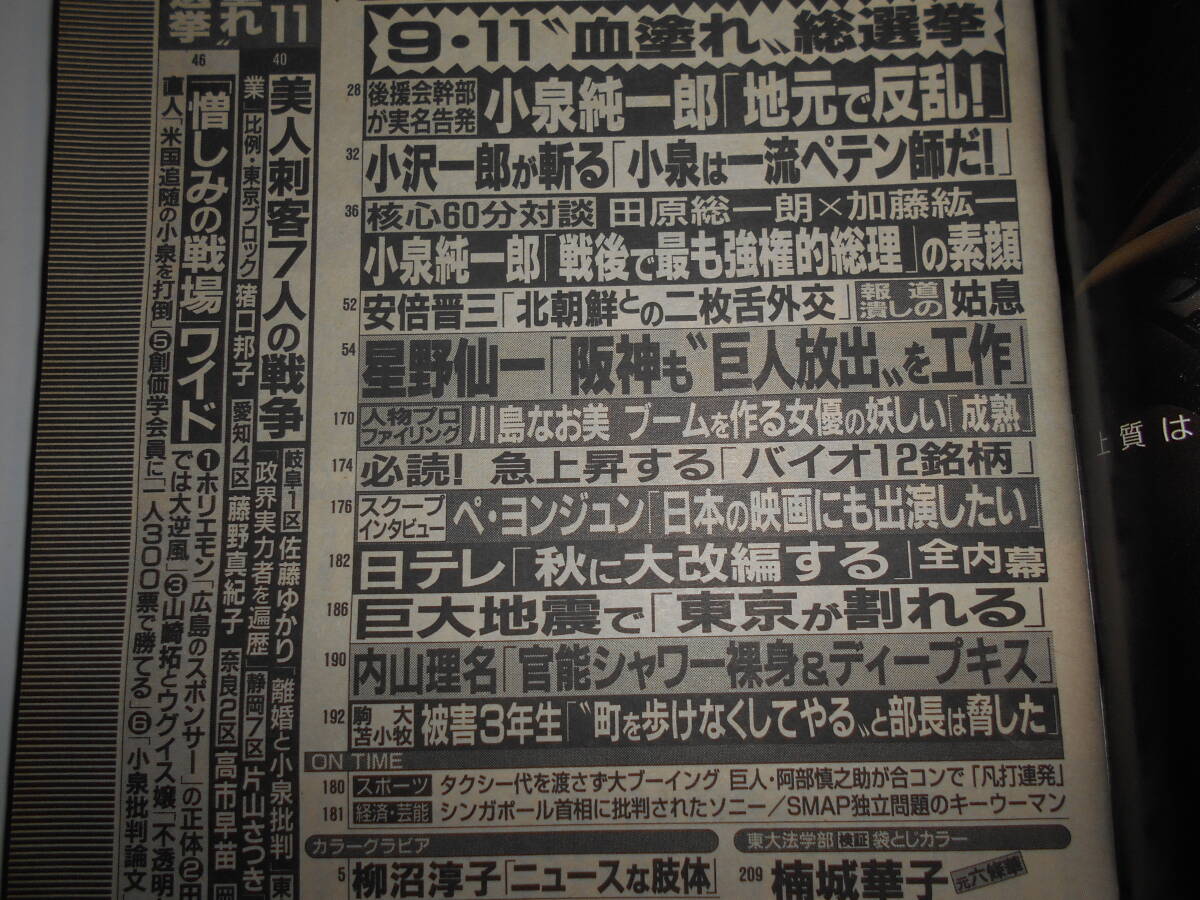 9・11〝血塗れ〟総選挙
28 後援会幹部が実名告発 小泉純一郎「地元で反乱!」
32 小沢一郎が斬る「小泉は一流ペテン師だ!」
36 核心60分対談 田原総一朗×加藤紘一
小泉純一郎「戦後で最も強権的総理」の素顔
52 安倍晋三「北朝鮮との二枚舌外交」報道潰しの姑息
54 星野仙一「阪神も〝巨人放出〟を工作」
170 人物プロファイリング 川島なお美 ブームを作る女優の妖しい「成熟」
174 必読! 急上昇する「バイオ12銘柄」
176 スクープインタビュー ペ・ヨンジュン「日本の映画にも出演したい」
182 日テレ「秋に大改編する」全内幕
186 巨大地震で「東京が割れる」
190 内山理名「官能シャワー裸身&ディープキス」
192 駒大苫小牧 被害3年生「〝町を歩けなくしてやる〟と部長は脅した」
ON TIME
180 スポーツ タクシー代を渡さず大ブーイング 巨人・阿部慎之助が合コンで「凡打連発」
181 経済・芸能 シンガポール首相に批判されたソニー/SMAP独立問題のキーウーマン
カラーグラビア
5 柳沼淳子「ニュースな肢体」
東大法学部 検証 袋とじカラー
209 楠城華子 元六條華
11
塗れ〟
選挙
40
美人刺客7人の戦争
岐阜1区 佐藤ゆかり「離婚と小泉批判」東
業」比例・東京ブロック 猪口邦子 愛知4区 藤野真紀子 奈良2区 高市早苗
「政界実力者を遍歴」静岡7区 片山さつき
46
「憎しみの戦場」ワイド
❶ホリエモン「広島のスポンサー」の正体❷田
では大逆風」③山崎拓とウグイス嬢「不透明
直人「米国追随の小泉を打倒」⑤創価学会員に「一人300票で勝てる」⑥「小泉批判論文
上質は